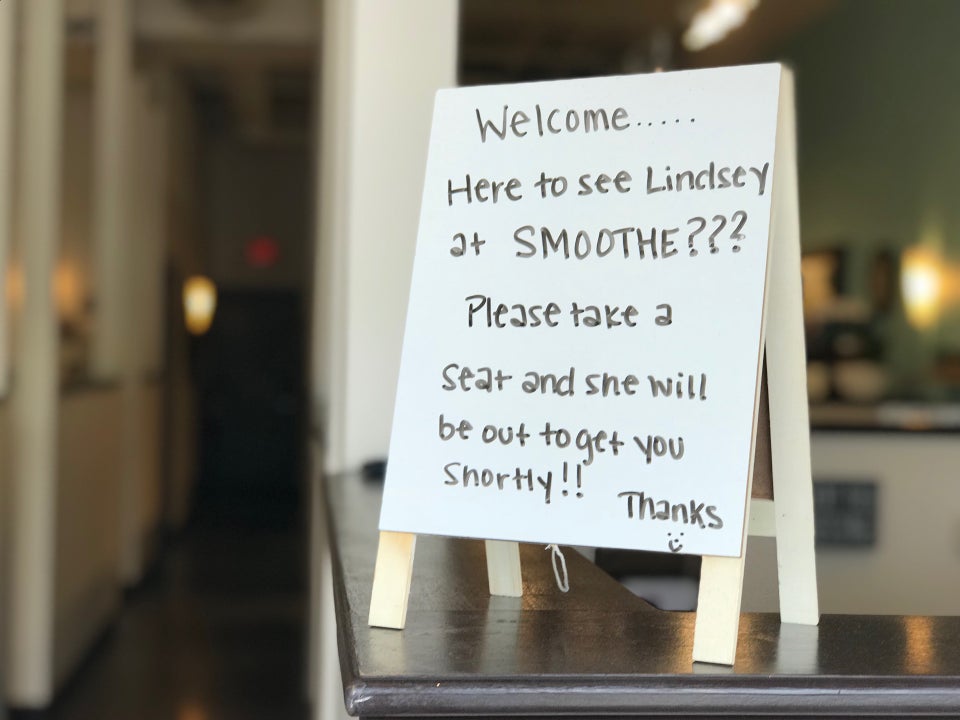 Welcome.....
Here to see Lindsey
at SMOOTHE???
Please take a
seat and she will
be out to get you
shortly!!
Thanks